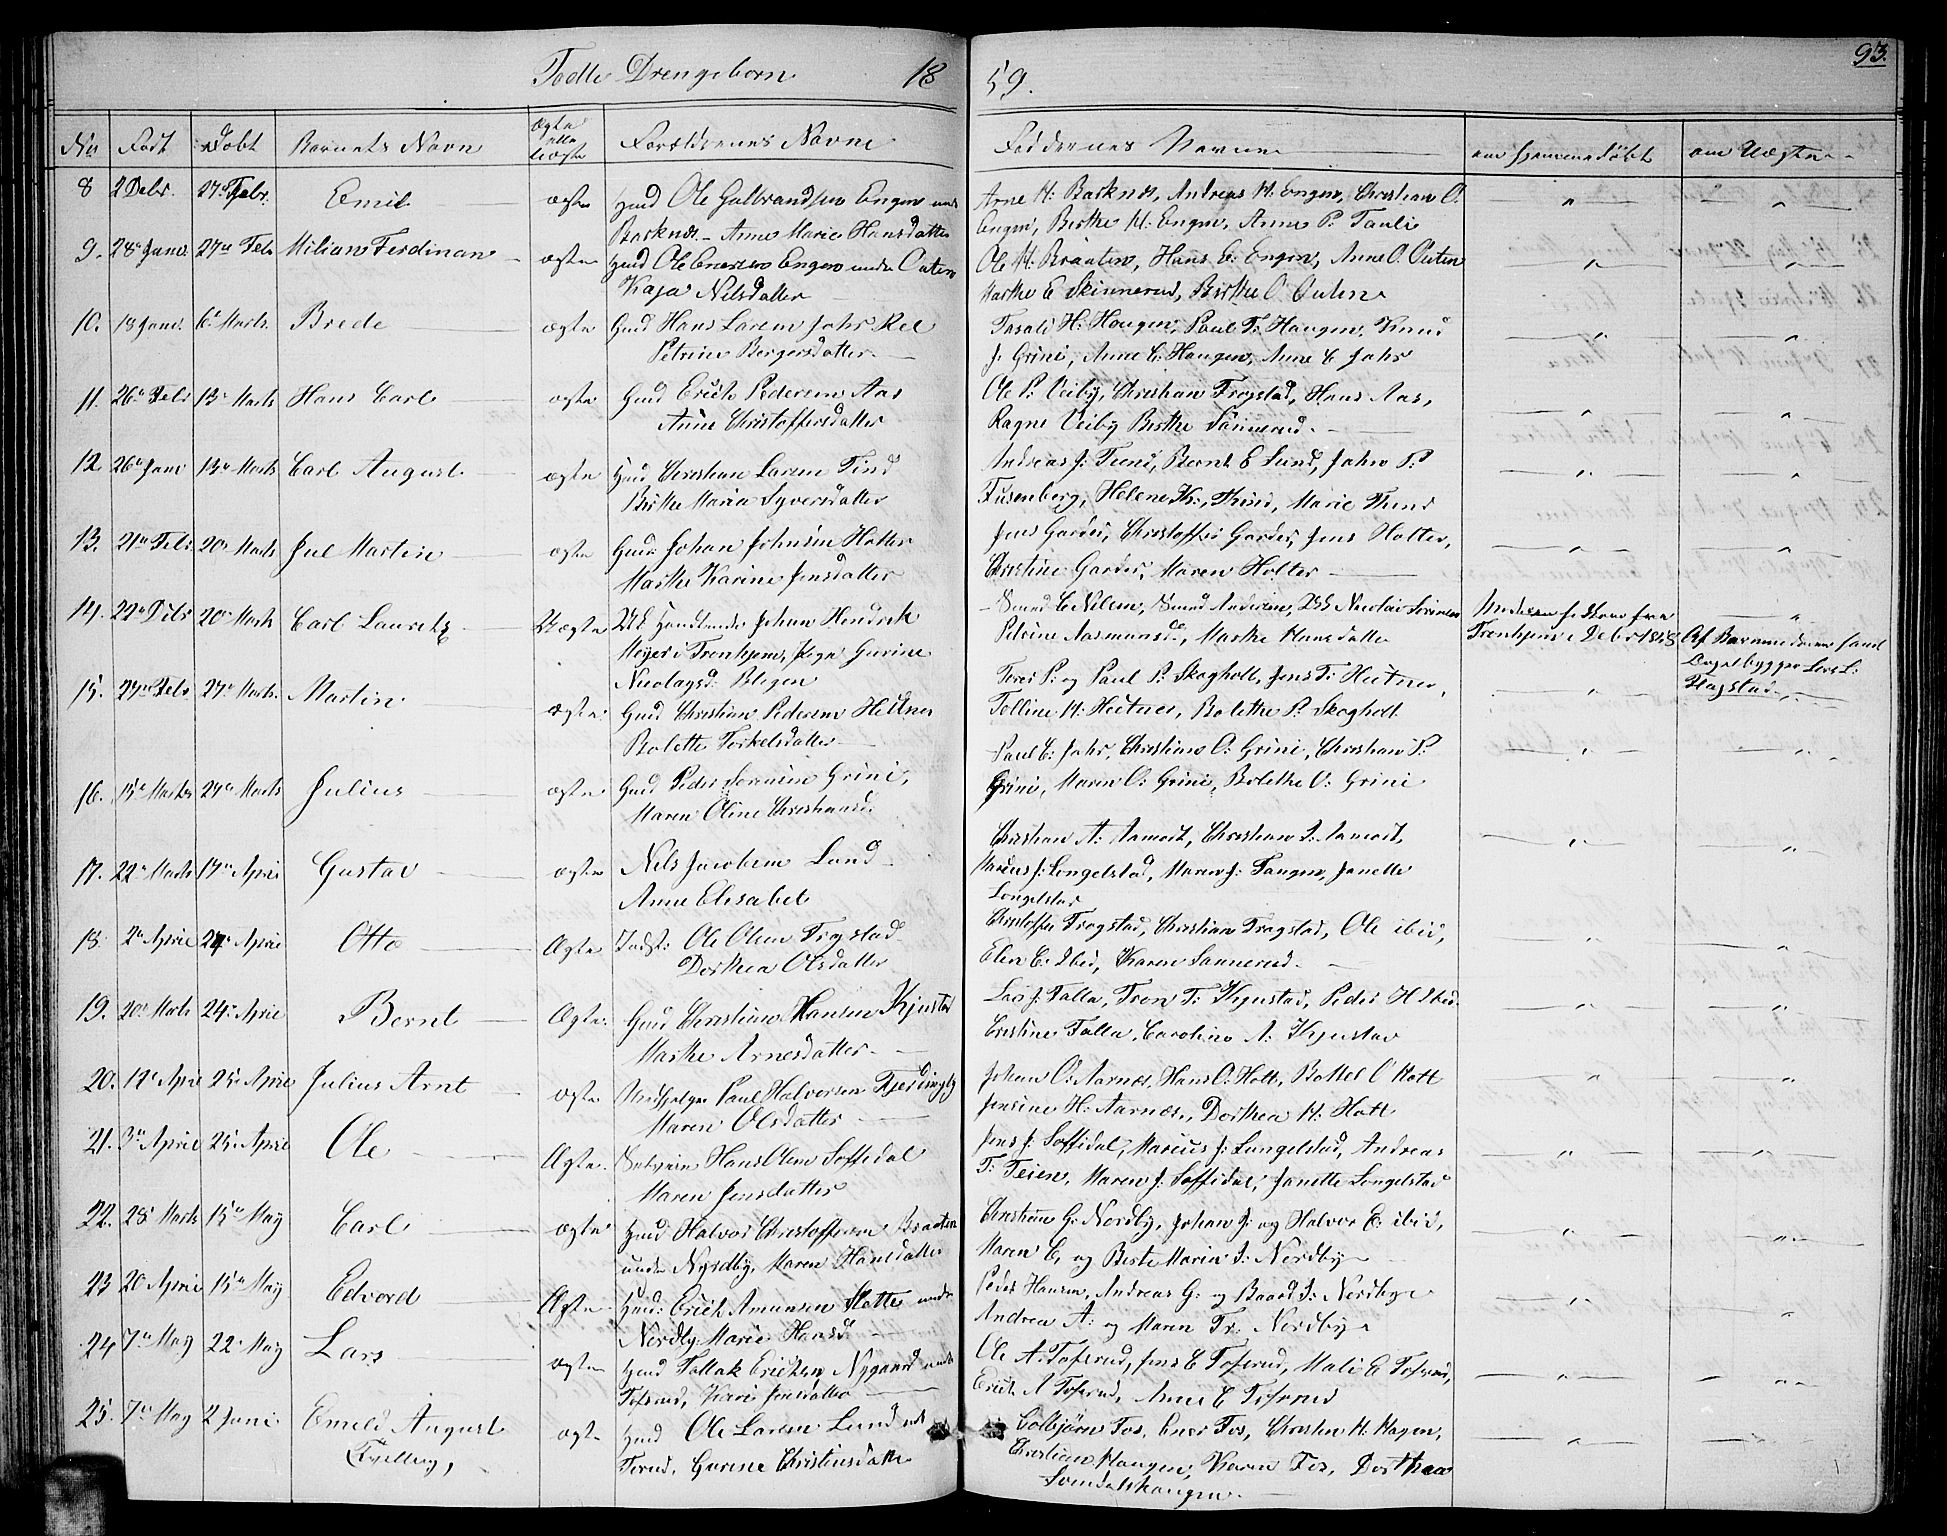 Fødte Drengebørn 1859.
93.
No Født Døbt Barnets Navn Ægte eller Uægte Forældrenes Navne Faddernes Navne om hjemmedøbt om Uægte
8 2 Debr. 27de Febr. Emil ægte Hmd Ole Gulbrandsen Engen under
Barknes - Anne Marie Hansdatter
Arne H: Barknes, Andreas H. Engen, Christian O.
Engen, Birthe H. Engen, Anne P. Taulie
9. 28 Janr. 27de Febr Milian Ferdinan ægte Hmd Ole Enersen Engen under Outen
Kaja Nilsdatter
Ole H. Braaten, Hans E. Engen, Anne O. Outen
Marthe E Skinnerud, Birthe O. Outen
10. 18 Janr. 6te Marts. Brede ægte Gmd Hans Larsen Jahr Rel
Petrine Bergersdatter
H: Haugen, Paul T: Haugen, Knud
J. Grini, Anne E. Haugen, Anne E Jahr
11. 26 Febr 13 Marts Hans Carl ægte Gmd Erich Pedersen Aas
Anne Christoffersdatter
Ole P. Veiby, Christian Frogstad, Hans Aas,
Ragne Veiby Birthe Sannerud.
12. 26 Janr 13 Marts Carl August ægte Hmd Christian Larsen Tind
Birthe Maria Syversdatter
Andreas J. Teini, Bernt E Lund, John P:
Fusenberg, Helene Kr: Thind, Marie Thind
13. 21 Febr 20 Marts Jul Martin ægte Gmd. Johan Johnsen Holter
Marthe Karine Jensdatter
Jens Garder, Christoffer Garder, Jens Holter,
Christine Garder, Maren Holter
14. 22 Debr 20 Marts Carl Lauritz Uægte Ubk Handlende Johan Hendrik
Meyer i Tronhjem, Pige Gurine
Nicolaysd: Bligen
Svend C Nilsen, Svend Andersen, Ubk Nicolai Sørensen
Petrine Aasmundsd., Marthe Hansdatter
Moderen fra
Tronhjem i Debr 1858
Af Barnemoderen
Lars L:
Flagstad
15. 27 Febr 27 Marts. Martin ægte Gmd Christian Pedersen Heitner
Bolette Torkelsdatter
Tores P: og Paul P: Skogholt, Jens T: Heitner,
Tolline H. Heitner, Bolethe P. Skogholt
16. 15 Marts 27 Marts Julius ægte Gmd Peder Sørensen Grini,
Maren Oline Christiansd.
Paul E: Jahr, Christian O: Grini, Christian P:
Grini, Maren O: Grini, Bolethe O: Grini
17. 22 Marts 17 April Gustav ægte Nils Jacobsen Lund
Anne Elisabet
Christian A: Aamodt, Christian J: Aamodt,
Marius J: Longelstad, Maren J: Tangen, Janette
Longelstad
18. 2 April 24 April Otto Ægte Indst: Ole Olsen Frogstad
Dorthea Olsdatter
Christoffer Frogstad, Christian Frogstad, Ole ibid,
Elen E. Ibid, Karen Sannerud.
19. 20 Marts 24 April Bernt Ægte. Gmd Christian Hansen Kjustad
Marthe Arnesdatter
Lars J. Falla, Tron T: Kjustad, Peder H Ibid
Cristine Falla, Caroline A: Kjustad
20. 17 April 25 April Julius Arnt ægte Paul Halvorsen Fjerdingby
Maren Olsdatter
Johan O: Aarnes, Hans O: Holt, Bottel O Holt
Jensine H: Aarnes, Dorthea H: Holt
21. 3 April 25 April Ole Ægte. Hans Olsen Soffidal
Maren Jensdatter
Jens J: Soffidal, Marius J: Lungelstad, Andreas
T: Teien, Maren J. Soffidal, Janette Longelstad
22. 28 Marts 15 May Carl ægte Hmd Halvor Christoffersen Braaten
under Nordby, Maren Hansdatter
Christian G. Nordby, Johan J: og Halvor E: ibid,
Maren E. og Berte Maria J: Nordby
23 20 April 15 May Edvord Ægte Hmd: Erich Amunsen Slette under
Nordby Marie Hansd
Peder Hansen, Andreas G: og Baard J: Nordby
Andrea A: og Maren Tr: Nordby
24 7 May 22 May Lars ægte Hmd Tollak Erichsen Nygaard under
Tofsrud, Kari Jensdatter
Ole A. Tofsrud, Jens E Tofsrud, Mali E Tofsrud,
Erich A Tofsrud, Anne E Tofsrud
25. 7 May 2 Juni Emeld August
(Tvilling,
ægte Hmd Ole Larsen Lund und
Gurine Christinsdatter
Colbjørn Fos, Ener Fos, Christen H. Hagen,
Christian Haugen, Karen Fos, Dorthea
Svendalshaugen